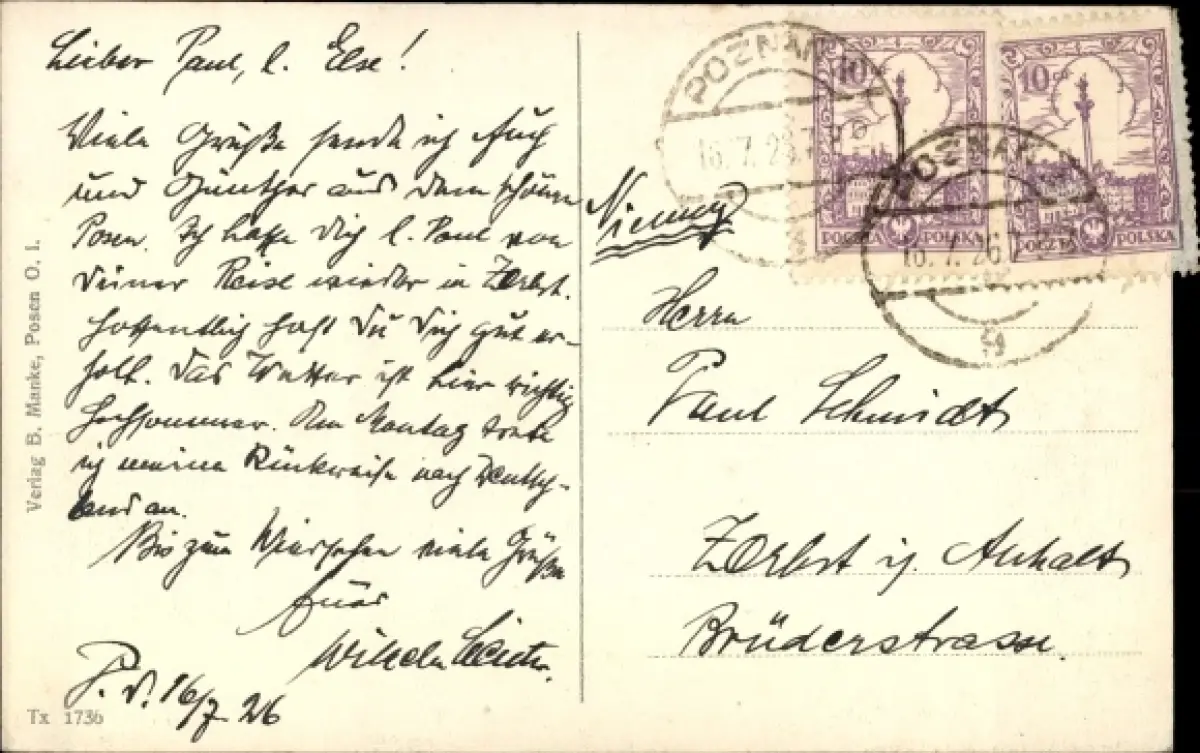 Lieber Paul, l. Else!
Viele Grüße sende ich Euch
und Günther aus dem schönen
Posen. Ich hoffe Dich l. Paul von
Deiner Reise wieder in Zerbst.
Hoffentlich hast Du Dich gut er-
holt. Das Wetter ist hier richtig
Hochsommer. Am Montag trete
ich meine Rückreise nach Deutsch-
land an.
Bis zum Wiedersehen viele Grüße
Euer
Wilhelm
P. d. 16/7 26
Verlag B. Manke, Posen O. 1.
Tx 1736
POZNAŃ
16.7.26
10
POCZTA POLSKA
POZNAŃ
16.7.26
9
10
POCZTA POLSKA
Niemcy
Herrn
Paul Schmidt
Zerbst i/ Anhalt
Brüderstrasse.